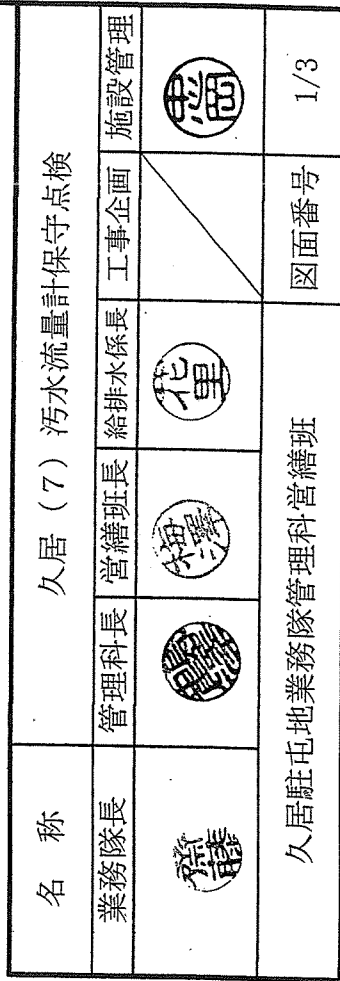 名 称 久居（7）汚水流量計保守点検
業務隊長 管理科長 営繕班長 給排水係長 工事企画 施設管理
齋藤 梅澤 花里 中岡
久居駐屯地業務隊管理科営繕班 図面番号 1/3